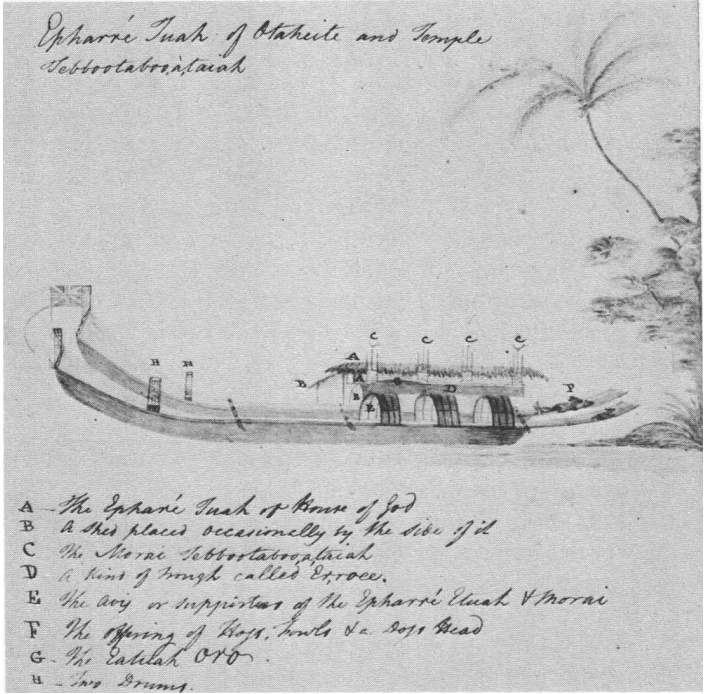 Epharré Tuah of Otaheite and Temple
Tebbootabooàtaiah
C C C C
A
H H
B A G D F
B
E
A - The Epharé Tuah or House of God
B A shed placed occasionelly by the side of it
C The Morai Tebbootabooàtaiah
D a kind of trough called Erroee.
E The avis or supporters of the Epharré Etuah & Morai
F The offering of Hogs, Fowls & a Dogs Head
G - The Eatuah ORO.
H - Two Drums.